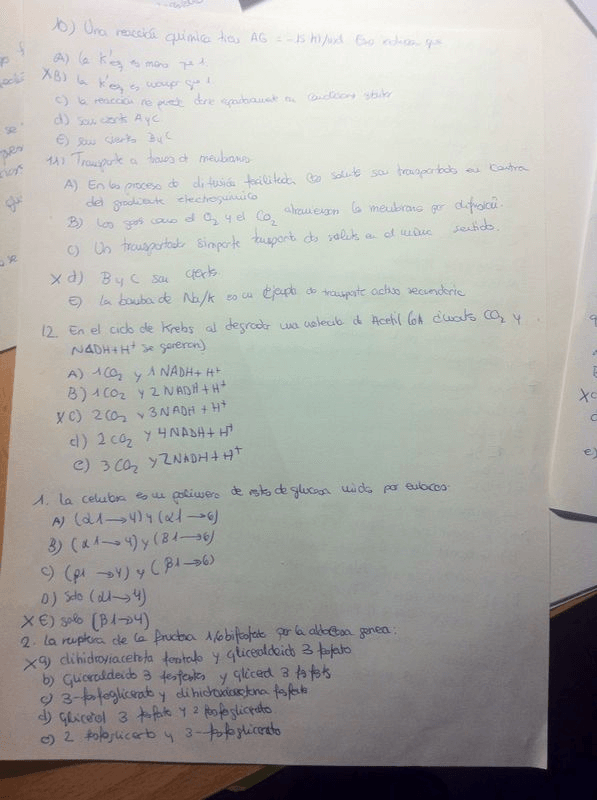 10) Una reacción química tiene ΔG = -15 kJ/mol Eso indica que
A) la K'eq es menor que 1.
X B) la K'eq es mayor que 1
C) la reacción no puede darse espontaneamente en condiciones
d) son ciertas A y C.
E) son ciertas B y C
11) Transporte a traves d membranas
A) En los procesos de difusión facilitada los solutos son transportados en contra
del gradiente electroquimico
B) Los gases como el O2 y el CO2 atraviesan la membrana por difusión.
C) Un transportador simporte transporta dos solutos en el mismo sentido.
X d) B y C son ciertas.
E) la bomba de Na/K es un ejemplo de transporte activo secundario
12. En el ciclo de Krebs al degradar una molecula de Acetil CoA cuantos CO2 y
NADH+H+ se generan)
A) 1CO2 y 1 NADH+H+
B) 1CO2 y 2 NADH+H+
X C) 2CO2 y 3NADH+H+
d) 2CO2 y 4NADH+H+
e) 3CO2 y 2NADH+H+
1. La celulosa es un polimero de restos de glucosa unidos por enlaces:
A) (α1→4) y (α1→6)
B) (α1→4) y (β1→6)
C) (β1→4) y (β1→6)
D) solo (α1→4)
X E) solo (β1→4)
2. La ruptura de la fructosa 1,6 bifosfato por la aldolasa genera:
X a) dihidroxiacetona fosfato y gliceraldeido 3 fosfato
b) Gliceraldeido 3 fosfato y glicerol 3 fosfato
c) 3-fosfoglicerato y dihidroxiacetona fosfato
d) Glicerol 3 fosfato y 2 fosfoglicerato.
e) 2 fosfoglicerato y 3-fosfoglicerato